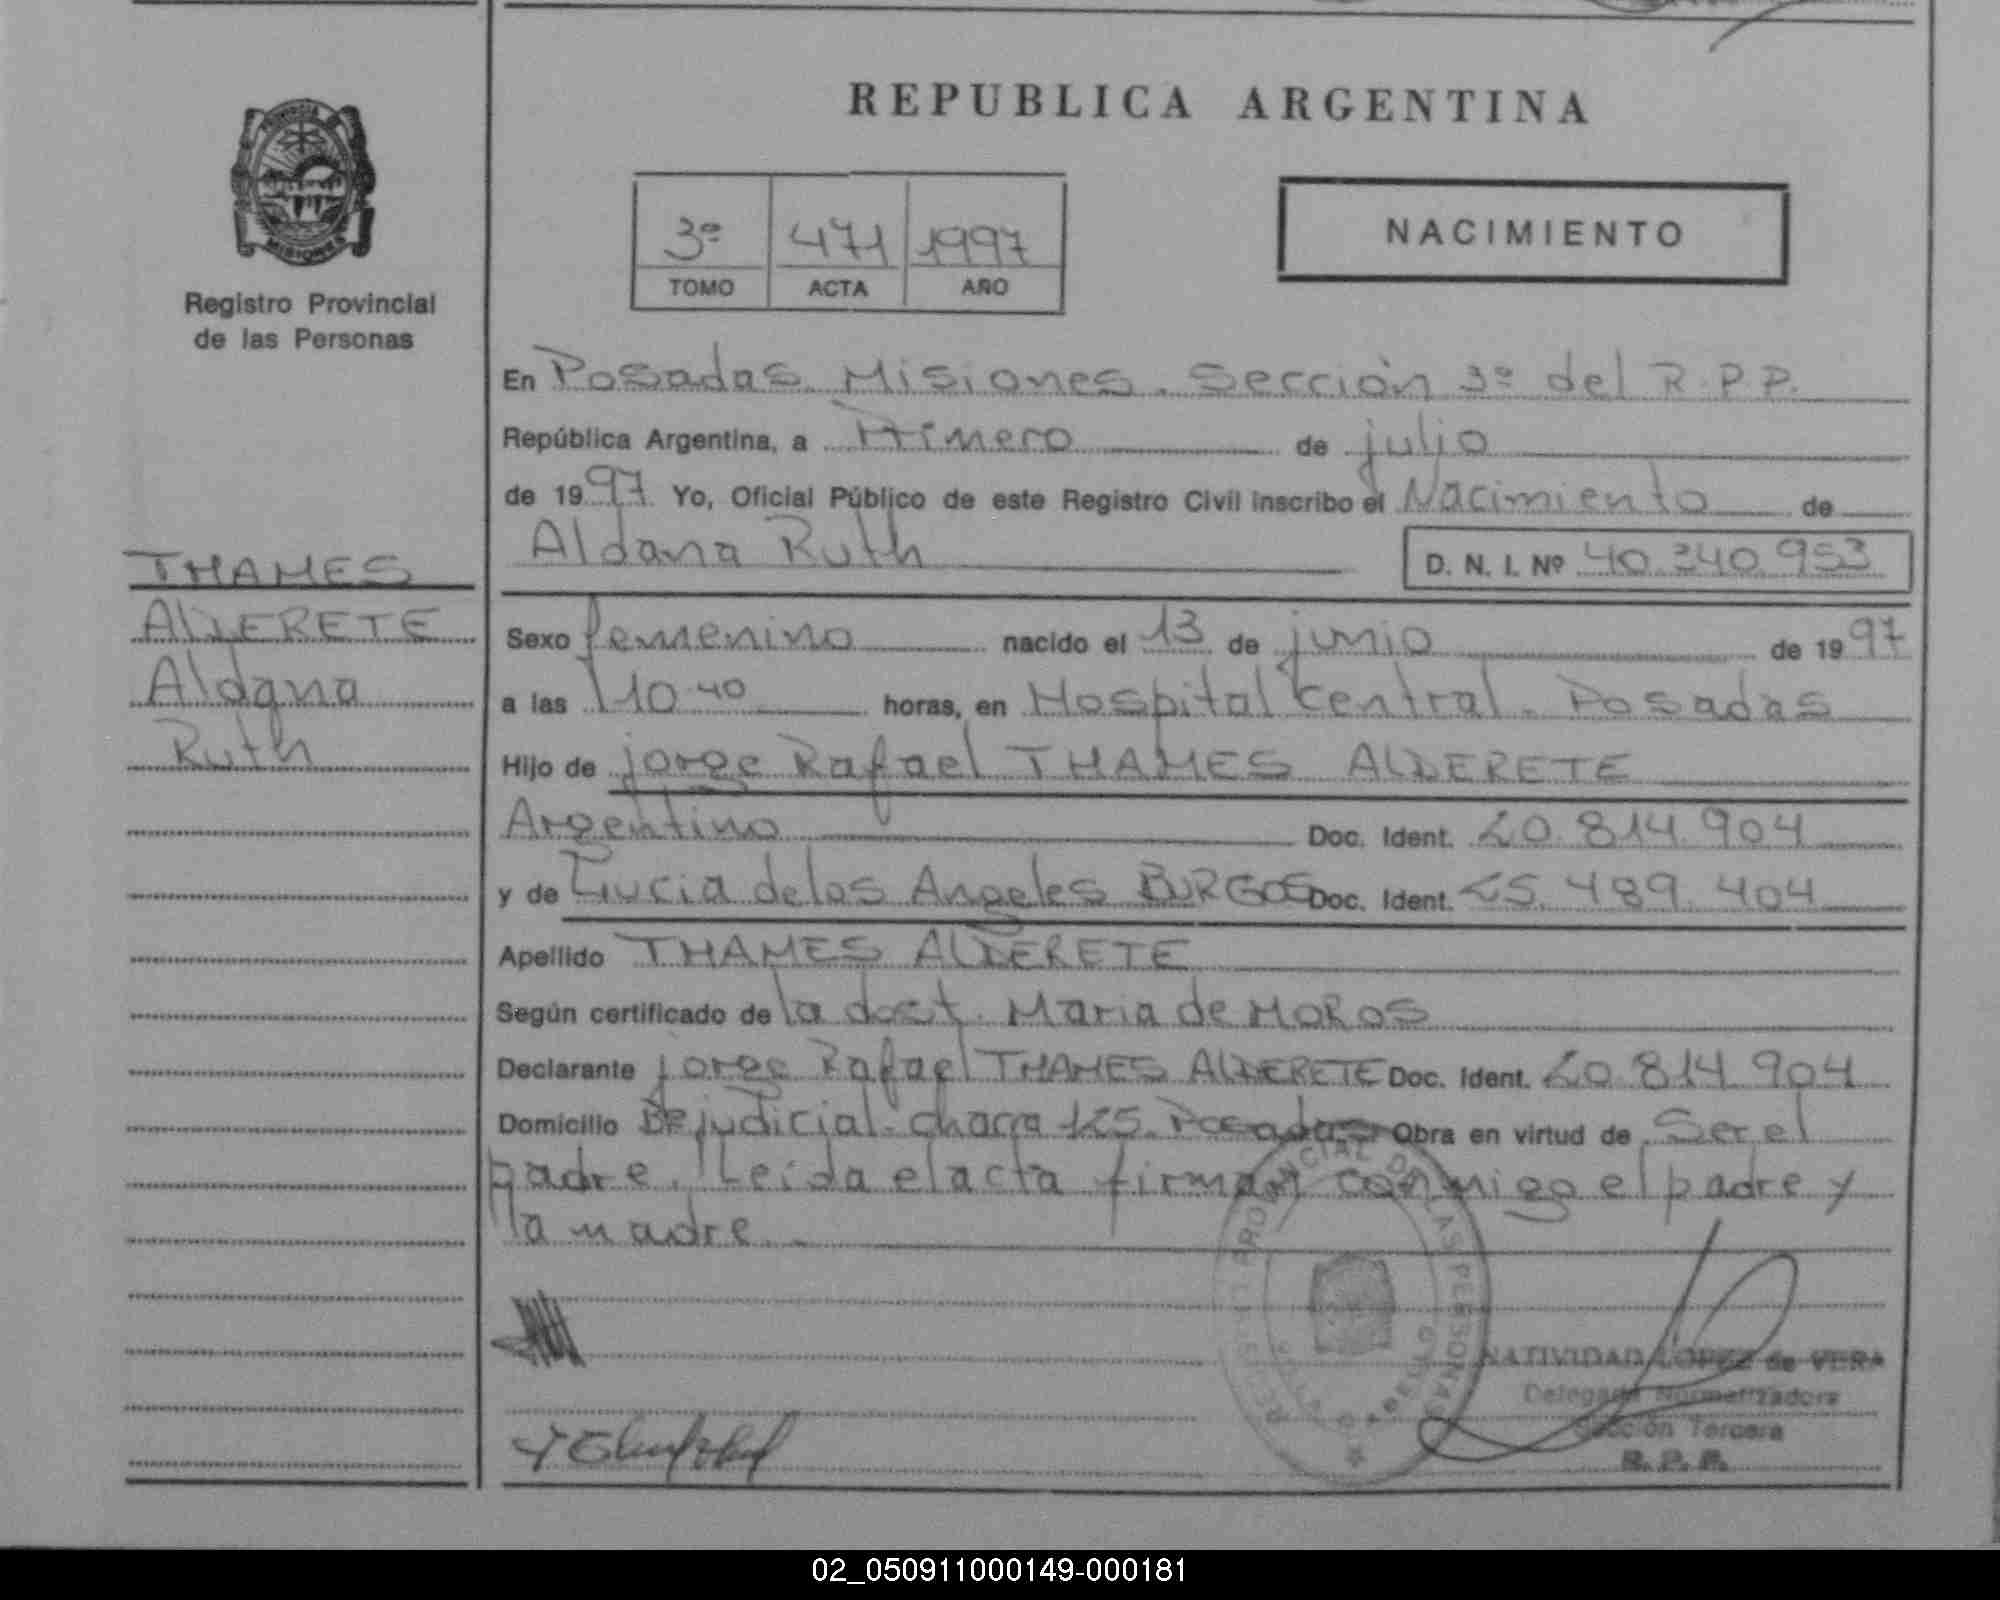 REPUBLICA ARGENTINA
PROVINCIA
MISIONES
Registro Provincial
de las Personas
3º 471 1997
TOMO ACTA AÑO
NACIMIENTO
En Posadas Misiones. Sección 3º del R.P.P.
República Argentina, a Primero de julio
de 1997 Yo, Oficial Público de este Registro Civil inscribo el Nacimiento de
Aldana Ruth
D. N. I. Nº 40.340.953
THAMES
ALDERETE
Aldana
Ruth
Sexo femenino nacido el 13 de junio de 1997
a las 10.40 horas, en Hospital Central. Posadas
Hijo de Jorge Rafael THAMES ALDERETE
Argentino Doc. Ident. 20.814.904
y de Lucia de los Angeles BURGOS Doc. Ident. 25.489.404
Apellido THAMES ALDERETE
Según certificado de la doct. Maria de MOROS
Declarante Jorge Rafael THAMES ALDERETE Doc. Ident. 20.814.904
Domicilio Bº judicial. chacra 125. Posadas Obra en virtud de Ser el
padre. Leida el acta firman conmigo el padre y
la madre.
REGISTRO PROVINCIAL DE LAS PERSONAS
NATIVIDAD LOPEZ de VERA
Delegada Normalizadora
Sección Tercera
R. P. P.
02_050911000149-000181